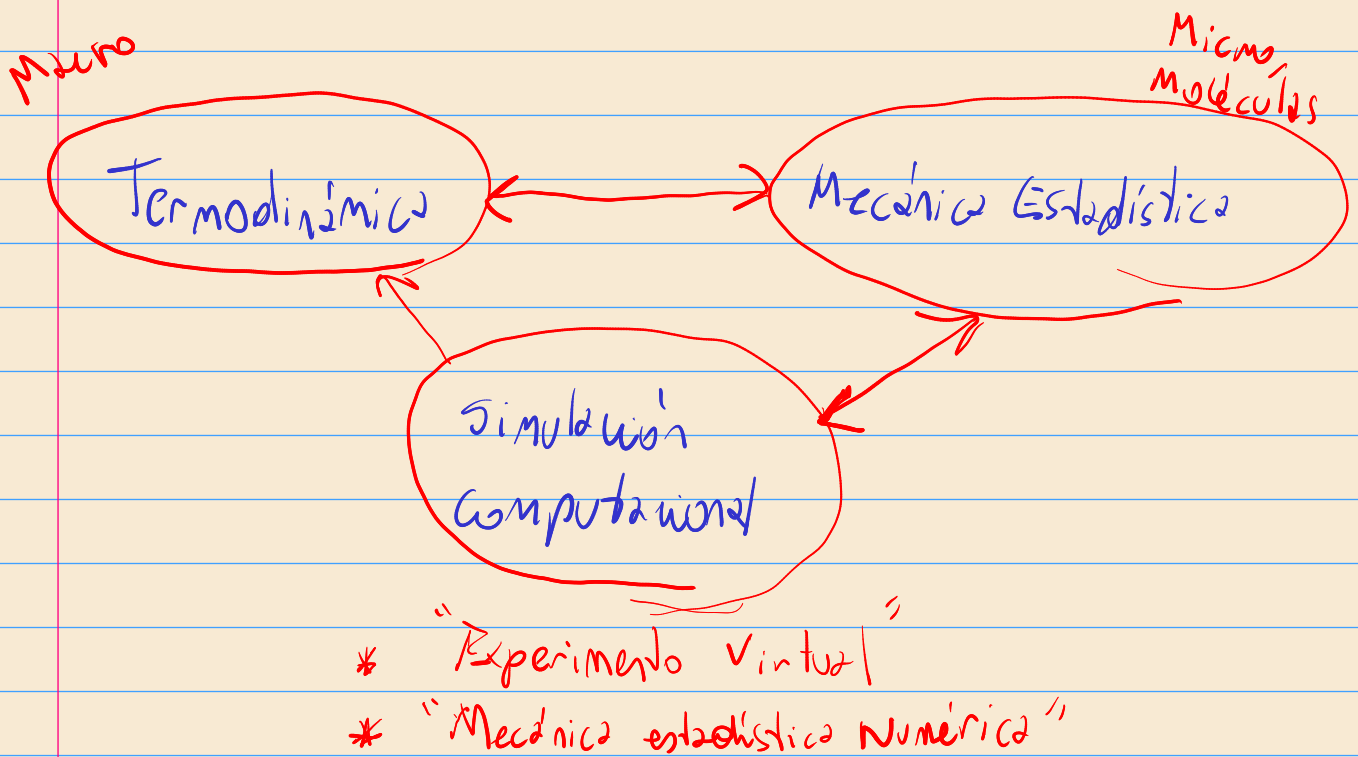 Macro
Micro,
Moléculas
Termodinámica
Mecánica Estadística
Simulación
Computacional
* "Experimento Virtual"
* "Mecánica estadística Numérica"